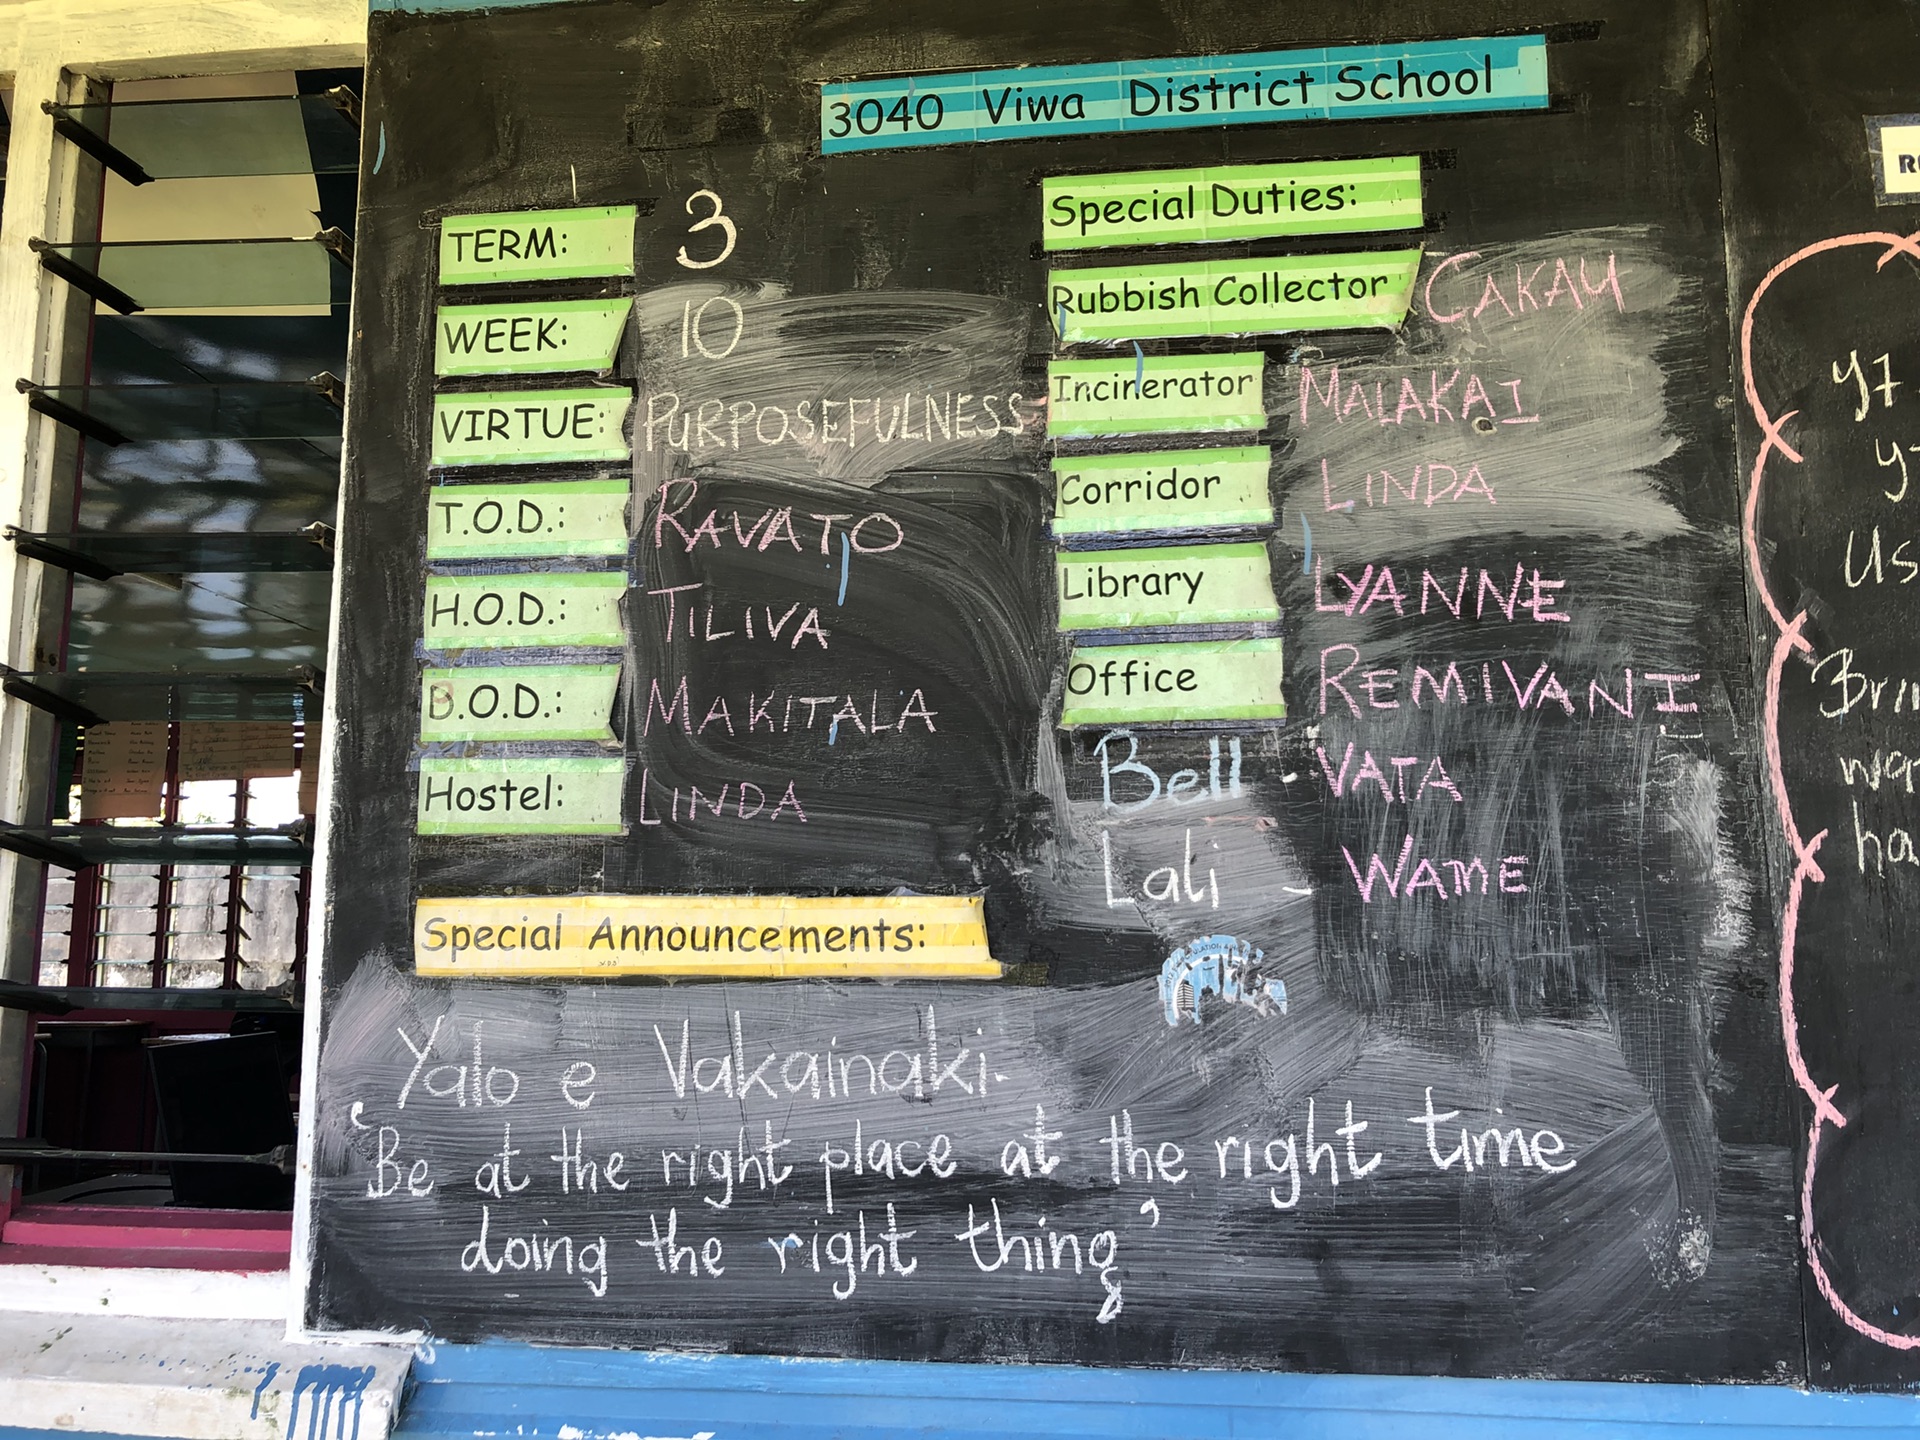 3040 Viwa District School
TERM: 3
WEEK: 10
VIRTUE: PURPOSEFULNESS
T.O.D.: RAVATO
H.O.D.: TILIVA
B.O.D.: MAKITALA
Hostel: LINDA
Special Duties:
Rubbish Collector CAKAU
Incinerator MALAKAI
Corridor LINDA
Library LYANNE
Office REMIVANI
Bell - VATA
Lali - WAME
Special Announcements:
Yalo e Vakainaki.
'Be at the right place at the right time
doing the right thing'